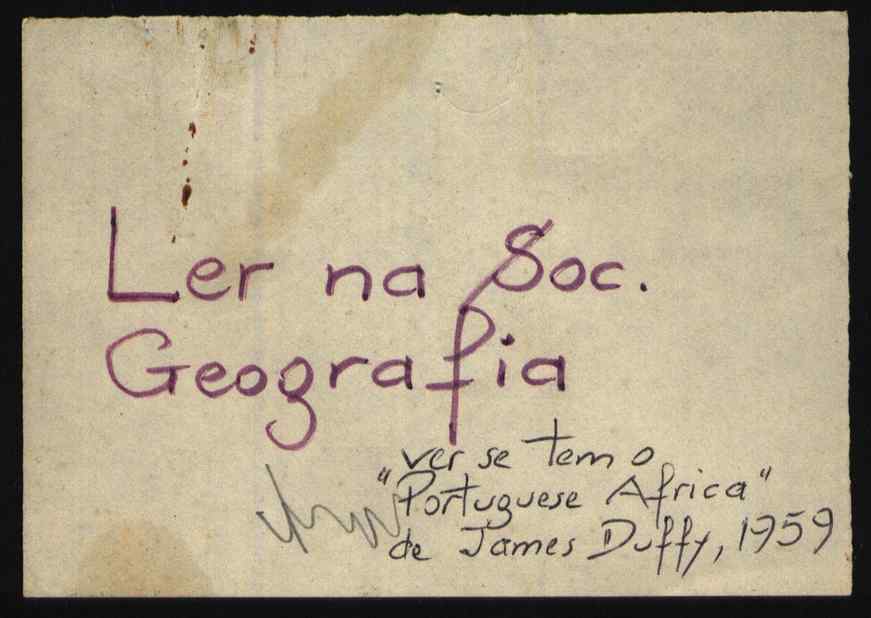 Ler na Soc.
Geografia
ver se tem o
"Portuguese Africa"
de James Duffy, 1959